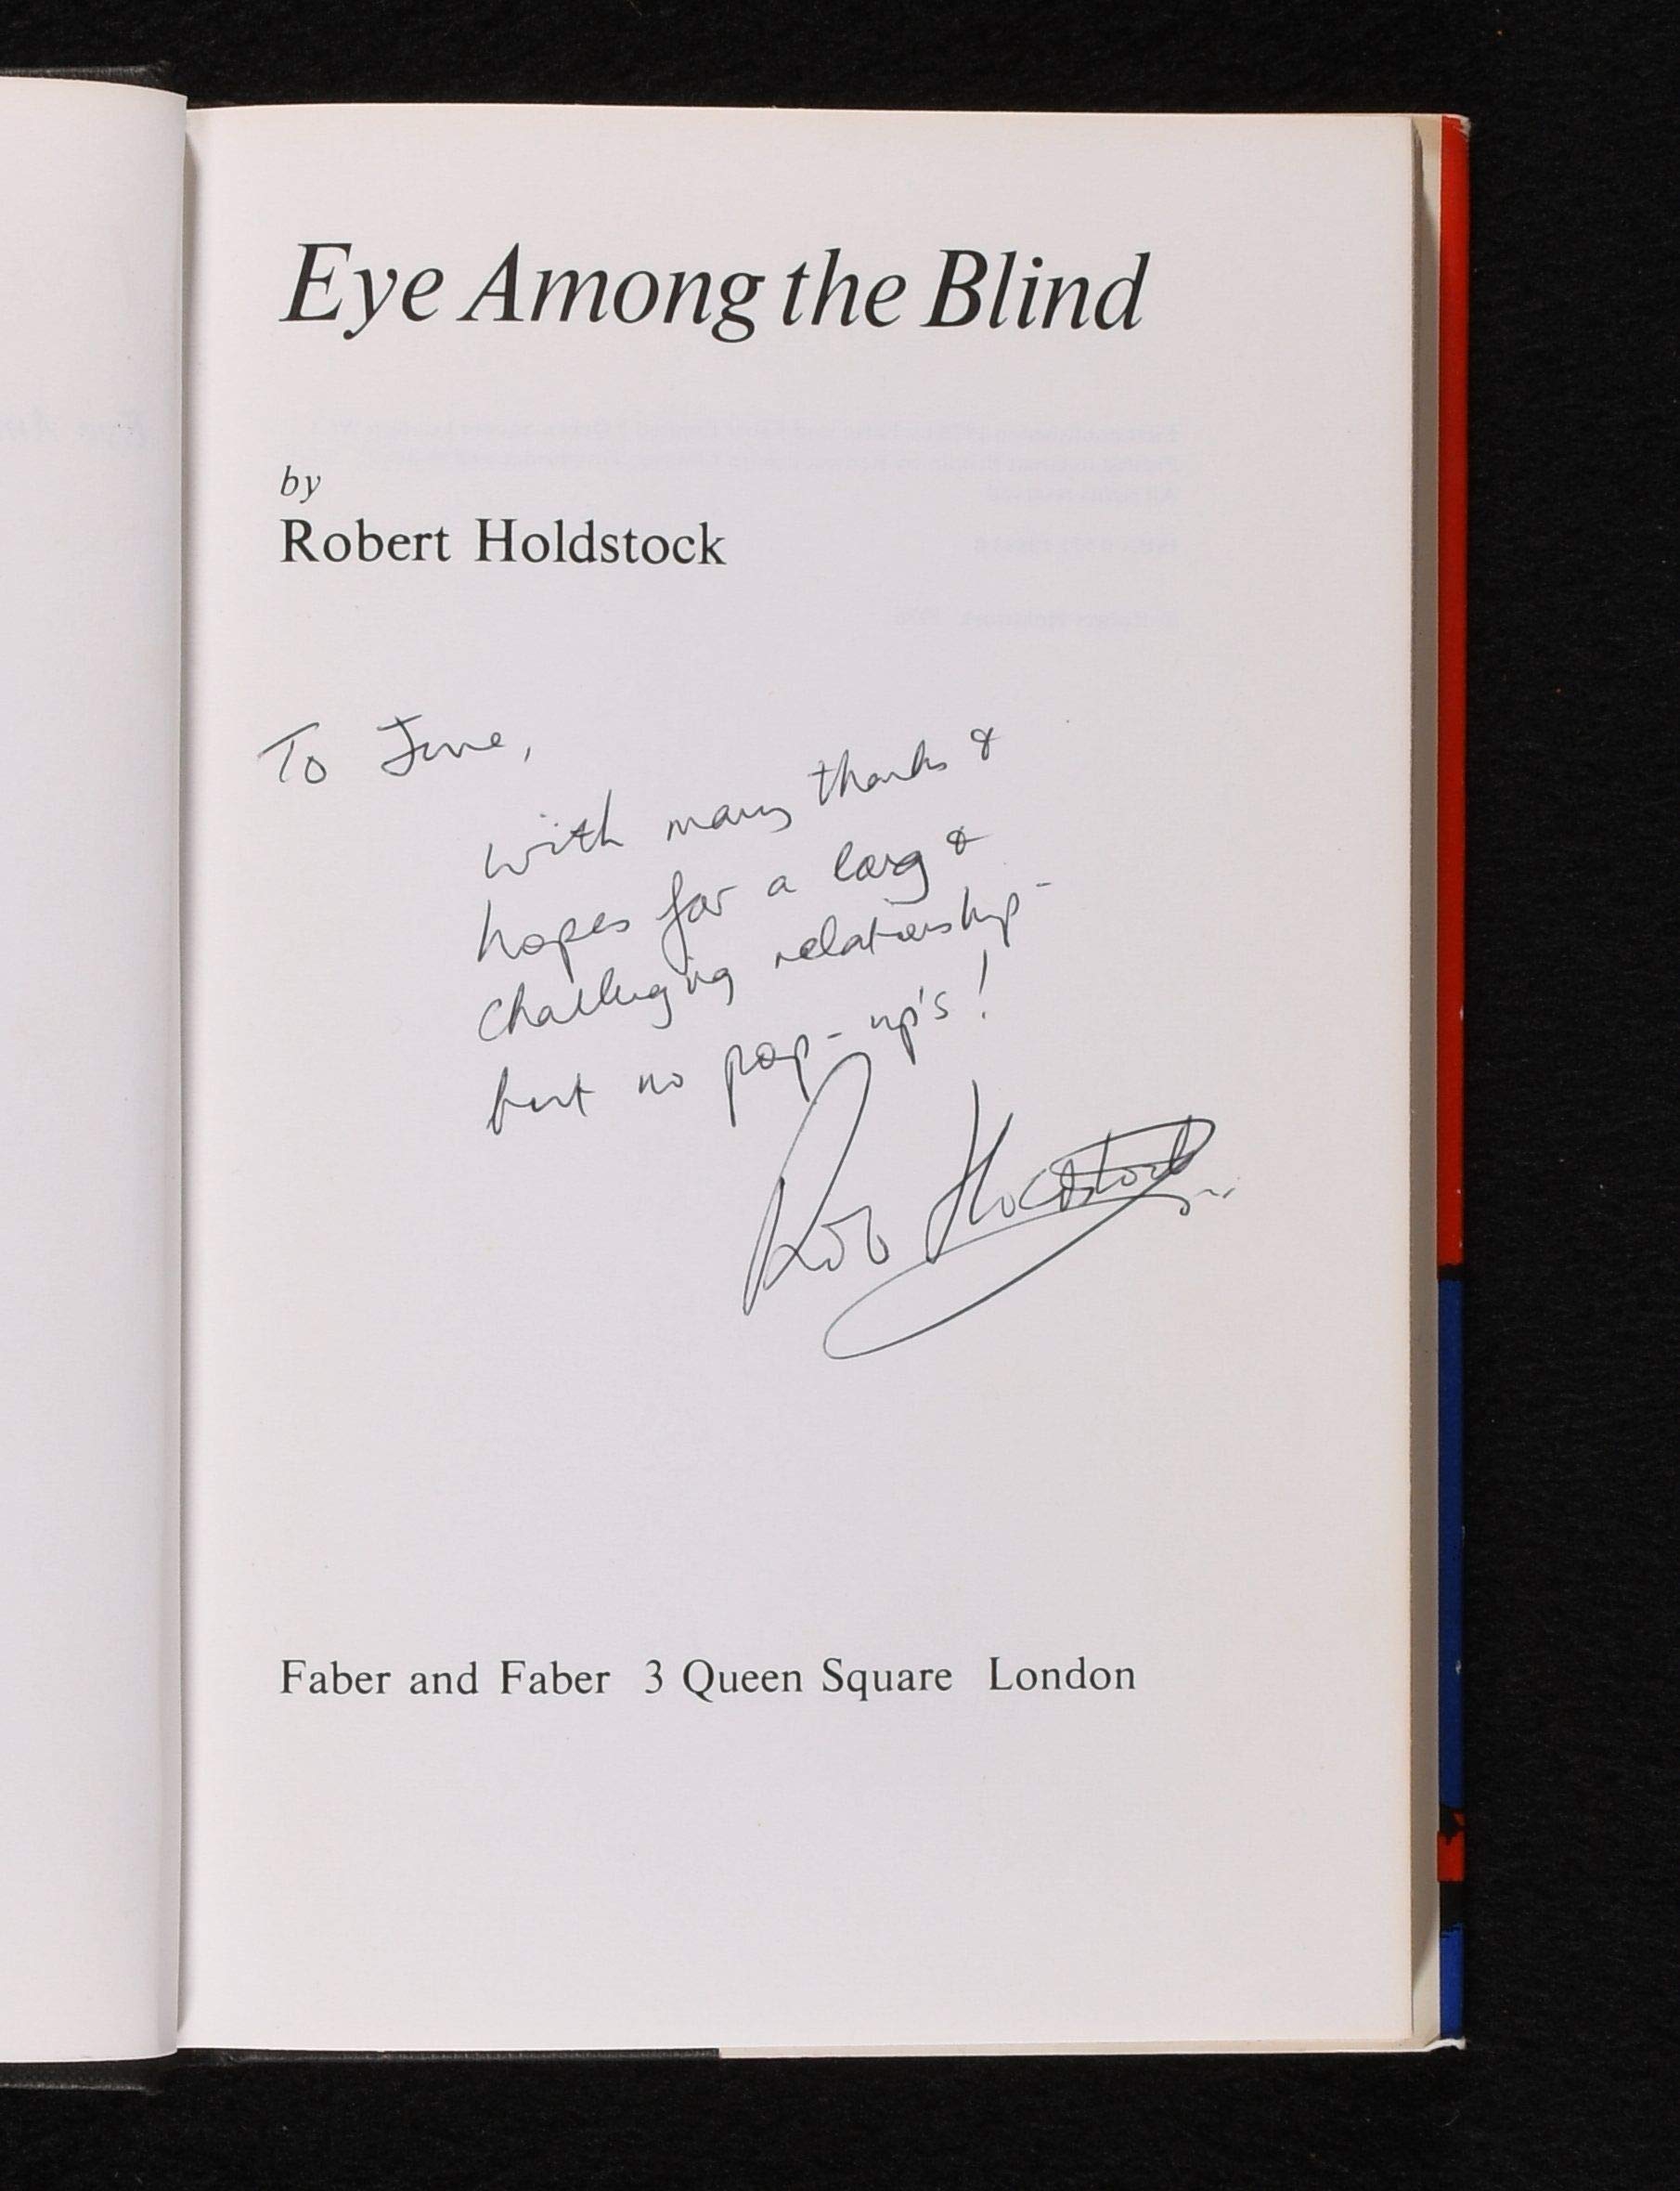 Eye Among the Blind
by
Robert Holdstock
To June,
with many thanks &
hopes for a long &
challenging relationship -
but no pop-up's!
Rob Holdstock
Faber and Faber 3 Queen Square London